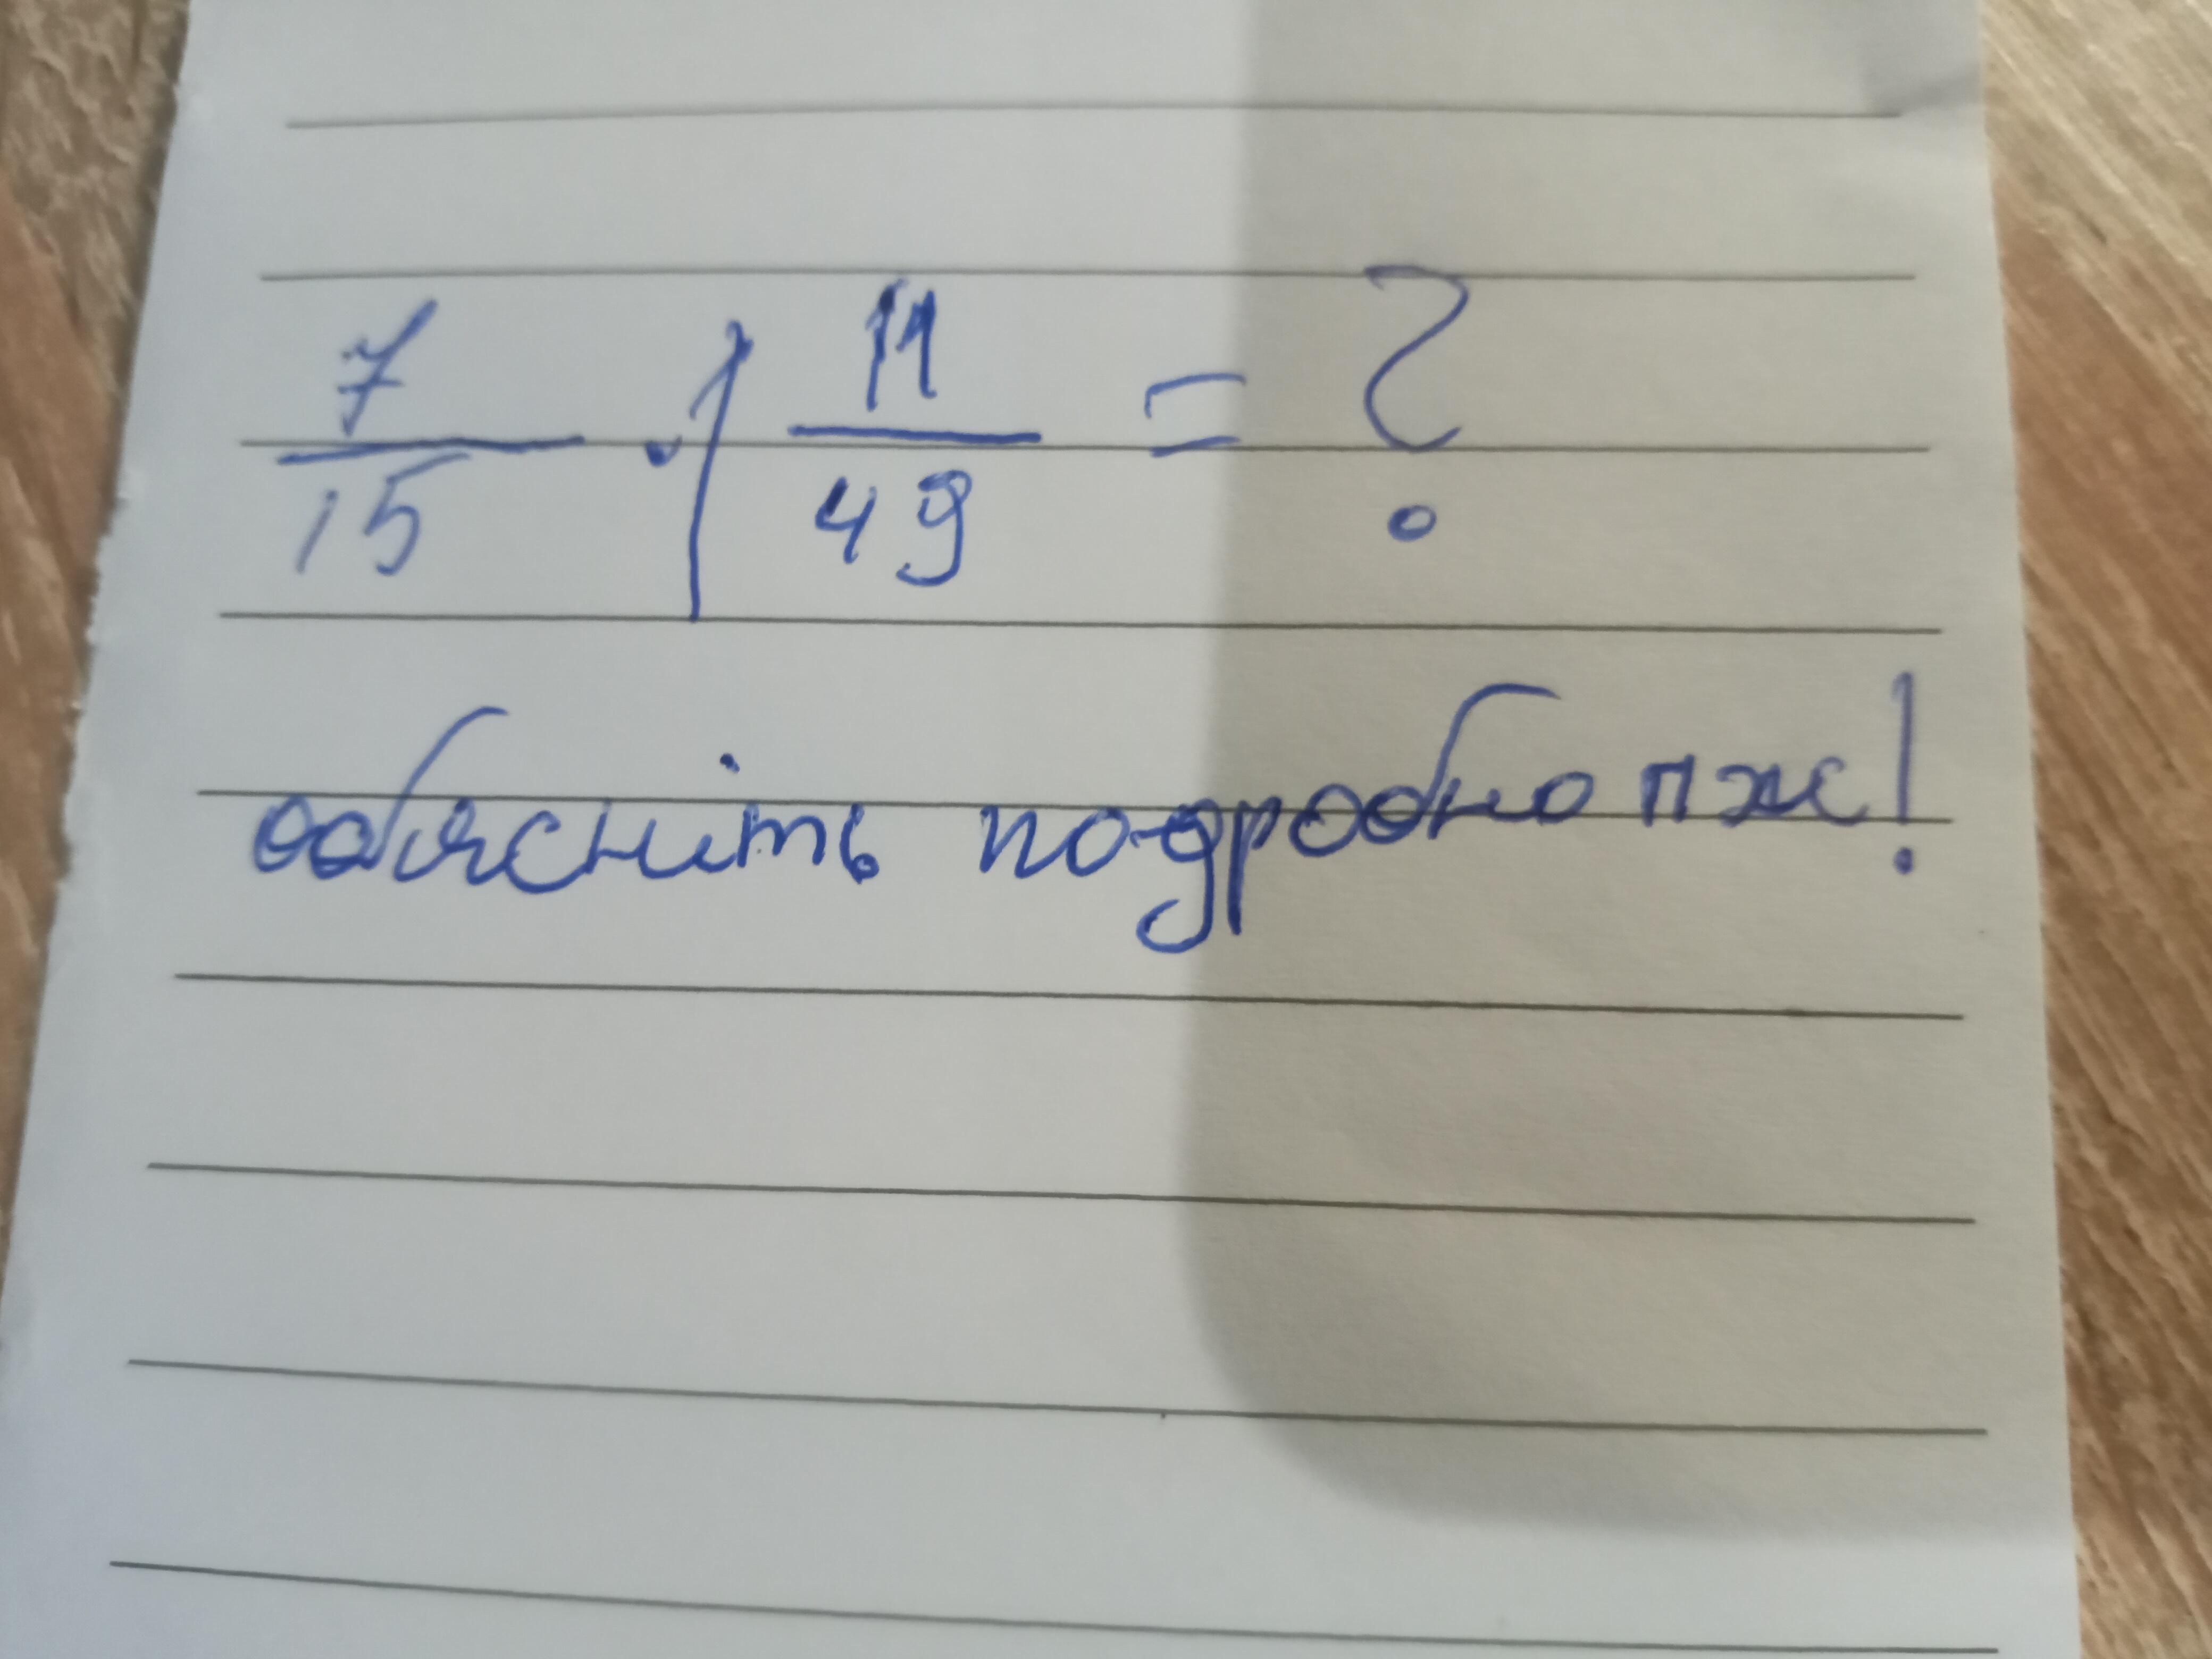 7/15 · 1 11/49 = ?
обясніть подробно пж!